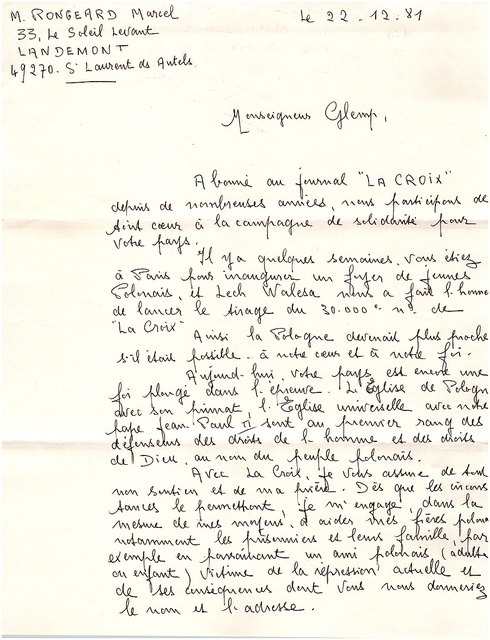 M. RONGEARD Marcel
Le 22.12.81
33, Le Soleil Levant
LANDEMONT
49270. St Laurent des Autels
Monseigneur Glemp,
Abonné au journal "LA CROIX"
depuis de nombreuses années, nous participons de
tout cœur à la campagne de solidarité pour
votre pays.
Il y a quelques semaines, vous étiez
à Paris pour inaugurer un foyer de jeunes
Polonais, et Lech Walesa nous a fait l'honneur
de lancer le tirage du 30.000e no. de
"La Croix"
Ainsi la Pologne devenait plus proche
s'il était possible - à notre cœur et à notre foi.
Aujourd'hui, votre pays est encore une
foi plongé dans l'épreuve. L'Église de Pologne
avec son primat, l'Église universelle avec notre
pape Jean Paul II sont au premier rang des
défenseurs des droits de l'homme et des droits
de Dieu, au nom du peuple polonais.
Avec La Croix, je vous assure de tout
mon soutien et de ma prière. Dès que les circons
tances le permettront, je m'engage, dans la
mesure de mes moyens, à aider mes frères polonais
notamment les prisonniers et leurs famille, par
exemple en parrainant un ami polonais (adulte
ou enfant) victime de la répression actuelle et
de ses conséquences dont vous nous donneriez
le nom et l'adresse.